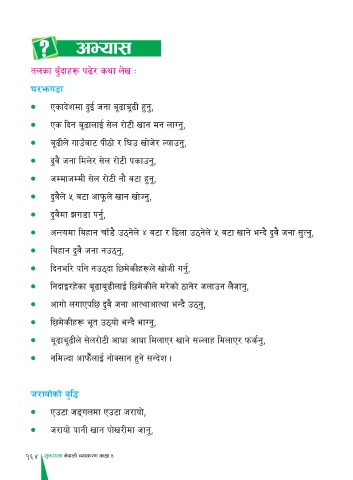 ? अभ्यास
तलका बुँदाहरू पढेर कथा लेख :
घरझगडा
● एकादेशमा दुई जना बूढाबूढी हुनु,
● एक दिन बूढालाई सेल रोटी खान मन लाग्नु,
● बूढीले गाउँबाट पीठो र घिउ खोजेर ल्याउनु,
● दुवै जना मिलेर सेल रोटी पकाउनु,
● जम्माजम्मी सेल रोटी नौ वटा हुनु,
● दुवैले ५ वटा आफूले खान खोज्नु,
● दुवैमा झगडा पर्नु,
● अन्त्यमा बिहान चाँडै उठ्नेले ४ वटा र ढिला उठ्नेले ५ वटा खाने भन्दै दुवै जना सुत्नु,
● बिहान दुवै जना नउठ्नु,
● दिनभरि पनि नउठ्दा छिमेकीहरूले खोजी गर्नु,
● निदाइरहेका बूढाबूढीलाई छिमेकीले मरेको ठानेर जलाउन लैजानु,
● आगो लगाएपछि दुवै जना आत्थाआत्था भन्दै उठ्नु,
● छिमेकीहरू भूत उठ्यो भन्दै भाग्नु,
● बूढाबूढीले सेलरोटी आधा आधा मिलाएर खाने सल्लाह मिलाएर फर्कनु,
● नमिल्दा आफैँलाई नोक्सान हुने सन्देश ।
जरायोको बुद्धि
● एउटा जङ्गलमा एउटा जरायो,
● जरायो पानी खान पोखरीमा जानु,
१६४ नेपाली व्याकरण कक्षा